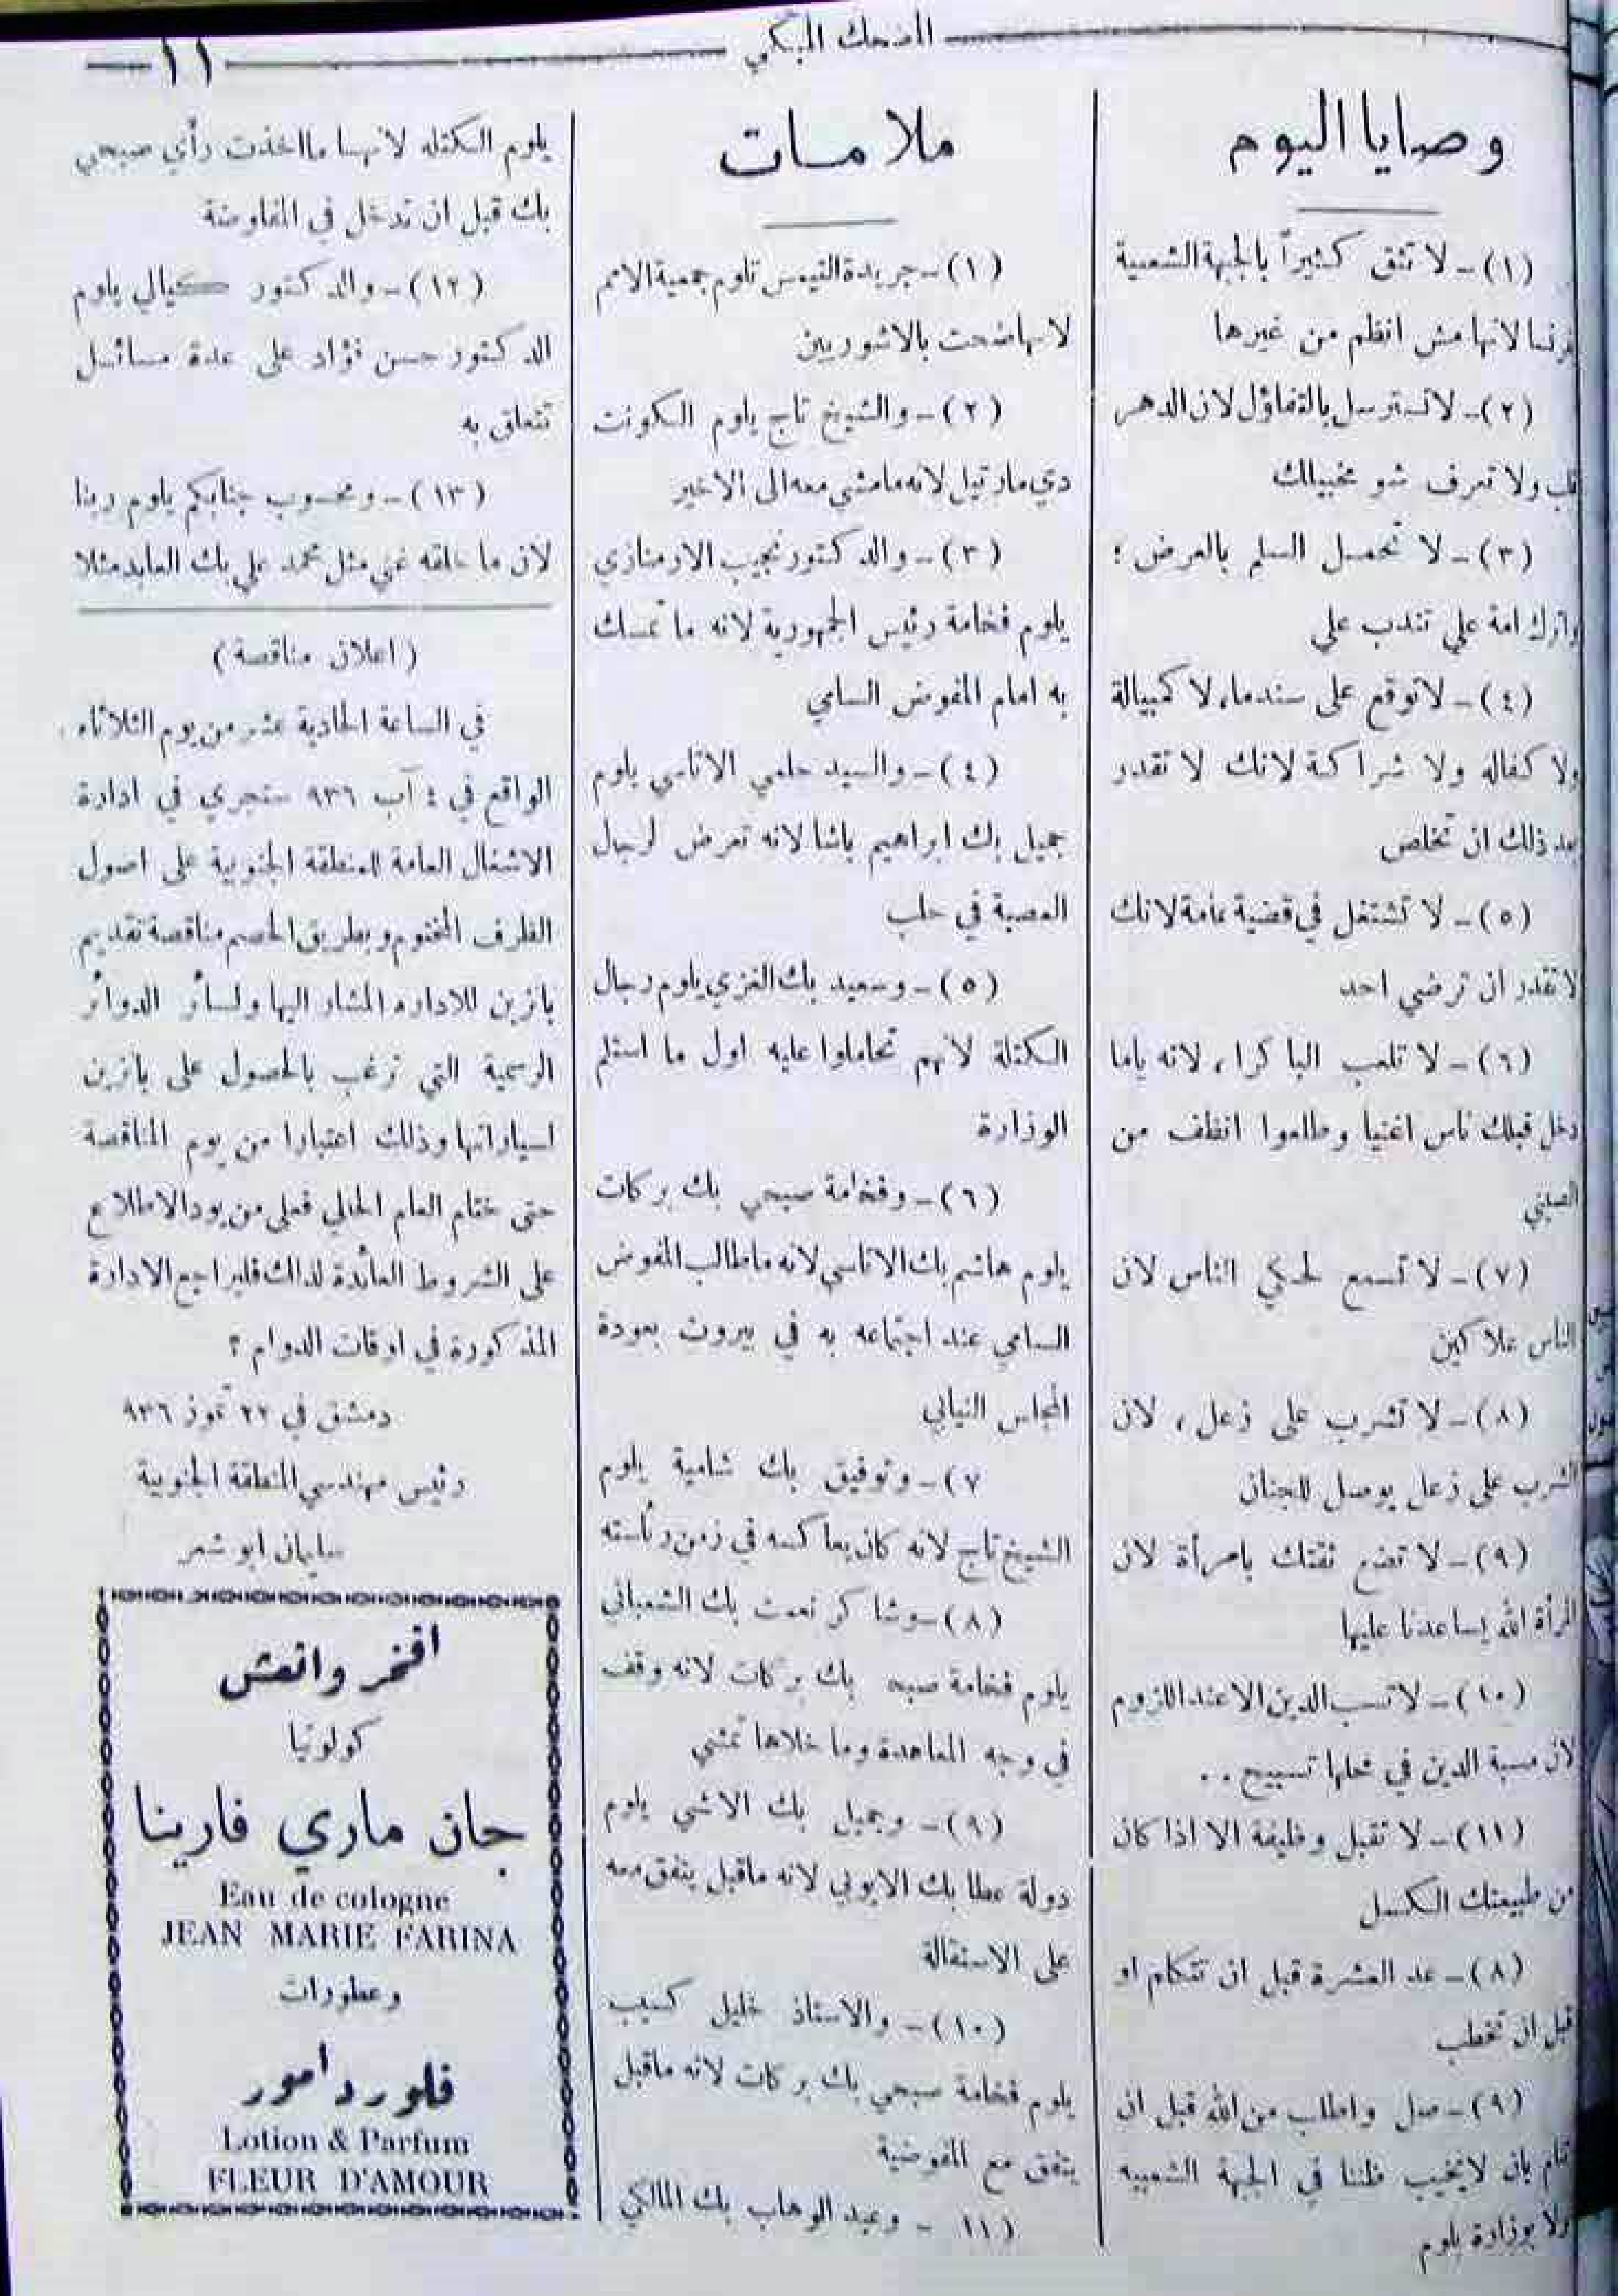 المضحك المبكي
١١
وصايا اليوم
(١) - لا تثق كثيراً بالجبهة الشعبية
لانها مش انظم من غيرها
(٢) - لا تسترسل بالتفاؤل لان الدهر
ولا تعرف شو مخبيلك
(٣) - لا تحمل السلم بالعرض ؛
واترك امة علي تندب علي
(٤) - لا توقع على سند ما، لا كمبيالة
ولا كفاله ولا شراكة لانك لا تقدر
بعد ذلك ان تخلص
(٥) - لا تشتغل في قضية عامة لانك
لا تقدر ان ترضي احد
(٦) - لا تلعب الباكرا ، لانه ياما
دخل قبلك ناس اغنيا وطلعوا انظف من
الصيني
(٧) - لا تسمع لحكي الناس لان
الناس علاكين
(٨) - لا تشرب على زعل ، لان
الشرب على زعل يوصل للجنان
(٩) - لا تضع ثقتك بامرأة لان
المرأة الله يساعدنا عليها
(١٠) - لا تسب الدين الا عند اللزوم
لان مسبة الدين في محلها تسبيح . .
(١١) - لا تقبل وظيفة الا اذا كان
من طبيعتك الكسل
(٨) - عد العشرة قبل ان تتكلم او
قبل ان تخطب
(٩) - صل واطلب من الله قبل ان
تنام بان لا يخيب ظننا في الجبهة الشعبيه
ولا بوزارة بلوم
ملامات
(١) - جريدة التيمس تلوم جمعية الامم
لانها ضحت بالاشوريين
(٢) - والشيخ تاج يلوم الكونت
دي مارتيل لانه ما مشي معه الى الاخير
(٣) - والدكتور نجيب الارمنازي
يلوم فخامة رئيس الجمهورية لانه ما تمسك
به امام المفوض السامي
(٤) - والسيد حلمي الاتاسي يلوم
جميل بك ابراهيم باشا لانه تعرض لرجال
العصبة في حلب
(٥) - وسعيد بك الغزي يلوم رجال
الكتلة لانهم تحاملوا عليه اول ما استلم
الوزارة
(٦) - وفخامة صبحي بك بركات
يلوم هاشم بك الاتاسي لانه ما طالب المفوض
السامي عند اجتماعه به في بيروت بعودة
المجلس النيابي
٧) - وتوفيق بك شامية يلوم
الشيخ تاج لانه كان يعاكسه في زمن رئاسته
(٨) - وشاكر نعمت بك الشعباني
يلوم فخامة صبحـ بك بركات لانه وقف
في وجه المعاهدة وما خلاها تمشي
(٩) - وجميل بك الالشي يلوم
دولة عطا بك الايوبي لانه ما قبل يتفق معه
على الاستقالة
(١٠) - والاستاذ خليل كسيب
يلوم فخامة صبحي بك بركات لانه ما قبل
يتفق مع المفوضية
(١١ - وعبد الوهاب بك المالكي
يلوم الكتله لانها ما اخذت رأي صبحي
بك قبل ان تدخل في المفاوضة
(١٢) - والدكتور كيالي يلوم
الدكتور حسن فؤاد على عدة مسائل
تتعلق به
(١٣) - ومحسوب جنابكم يلوم ربنا
لان ما خلقه غني مثل محمد علي بك العابد مثلا
(اعلان مناقصة)
في الساعة الحادية عشر من يوم الثلاثاء
الواقع في ٤ آب ٩٣٦ ستجري في ادارة
الاشغال العامة للمنطقة الجنوبية على اصول
الظرف المختوم وبطريق الحسم مناقصة تقديم
بانزين للاداره المشار اليها ولسائر الدوائر
الرسمية التي ترغب بالحصول على بانزين
لسياراتها وذلك اعتبارا من يوم المناقصة
حتى ختام العام الحالي فعلى من يود الاطلاع
على الشروط العائدة لذلك فليراجع الادارة
المذكورة في اوقات الدوام ؟
دمشق في ٢٢ تموز ٩٣٦
رئيس مهندسي المنطقة الجنوبية
سليمان ابو شعر
افتخر وانعش
كولونيا
جان ماري فارينا
Eau de cologne
JEAN MARIE FARINA
وعطورات
فلور دامور
Lotion & Parfum
FLEUR D'AMOUR